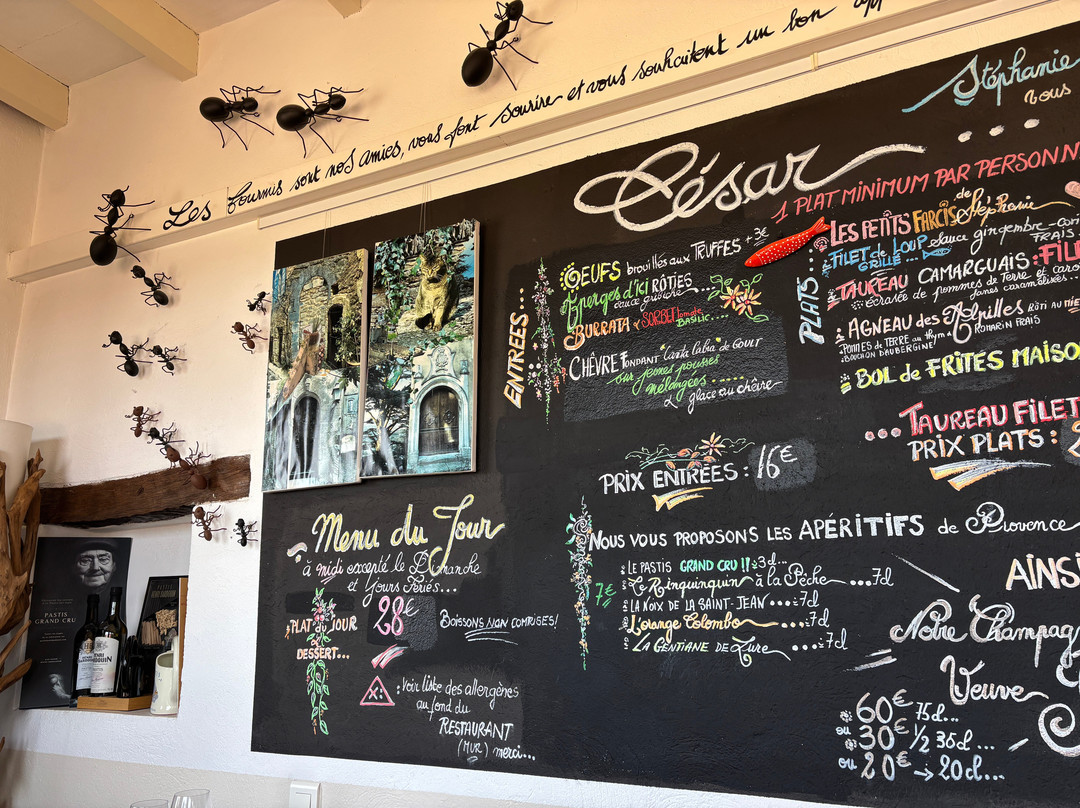 Les fourmis sont nos amies, vous font sourire et vous souhaitent un bon
Stéphanie
vous
César
1 PLAT MINIMUM PAR PERSONN
ENTREES...
OEUFS brouillés aux TRUFFES +3€
Asperges d'ici RÔTIES
sauce gribiche...
BURRATA & SORBET tomate
BASILIC...
CHÈVRE FONDANT "Carta Cabra" de GOULT
sur jeunes pousses
mélangées......
& glace au chèvre
PRIX ENTRÉES : 16€
PLATS...
LES PETITS FARCIS de Stéphanie
FILET de LOUP sauce gingembre-cor
GRILLÉ... FRAIS
TAUREAU CAMARGUAIS : FIL
écrasée de pommes de Terre et caro
jaunes caramélisées...
AGNEAU des Alpilles RÔTI AU
POMMES de TERRE au thym & ROMARIN FRAIS
BOUCHON D'AUBERGINE
BOL de FRITES MAISO
TAUREAU FILET
PRIX PLATS :
Menu du Jour
à midi excepté le Dimanche
et Jours Fériés...
PLAT du JOUR
DESSERT...
28€
BOISSONS NON COMPRISES!
Voir liste des allergènes
au fond du
RESTAURANT
(MUR) merci...
NOUS VOUS PROPOSONS LES APÉRITIFS de Provence
7€
LE PASTIS GRAND CRU !! 3cl...
Le Rinquinquin à la Pêche ...7cl
LA NOIX DE LA SAINT-JEAN ...7cl
L'ORANGE Colombo ...7cl
LA GENTIANE DE LURE ...7cl
AINSI
Notre Champag
Veuve
60€ 75cl...
ou 30€ 1/2 35cl...
ou 20€ → 20cl...
PASTIS
GRAND CRU